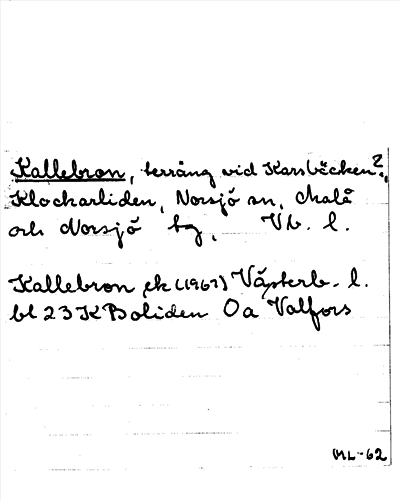 Kallebron, terräng vid Karsbäcken?,
Klockarliden, Norsjö sn, Malå
och Norsjö tg, Vb. l.
Kallebron, ek (1967) Västerb. l.
bl 23 K Boliden Oa Valfors
ML-62